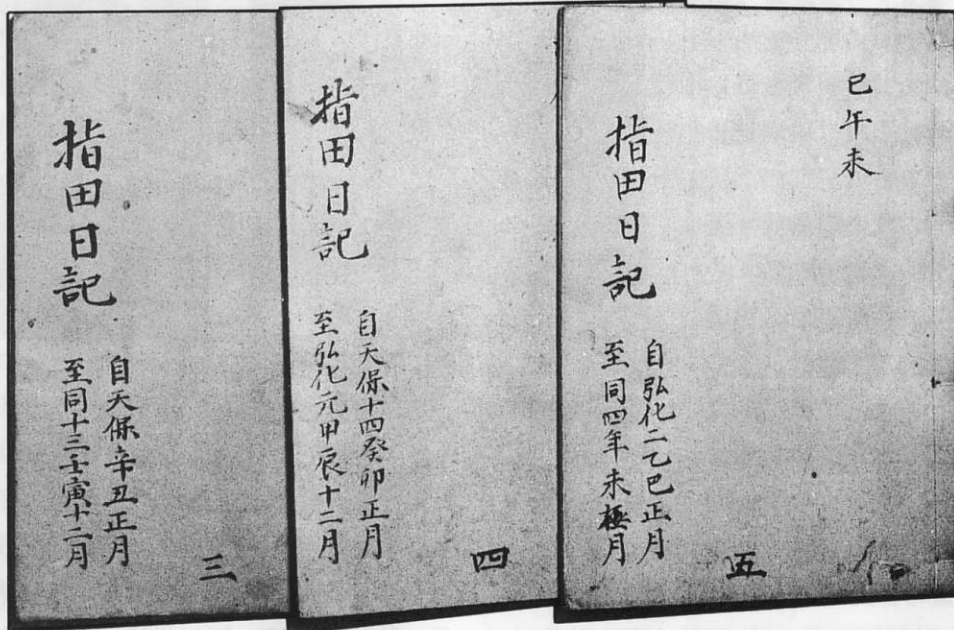 巳午未
指田日記
自弘化二乙巳正月
至同四年未極月
五
指田日記
自天保十四癸卯正月
至弘化元甲辰十二月
四
指田日記
自天保辛丑正月
至同十三壬寅十二月
三